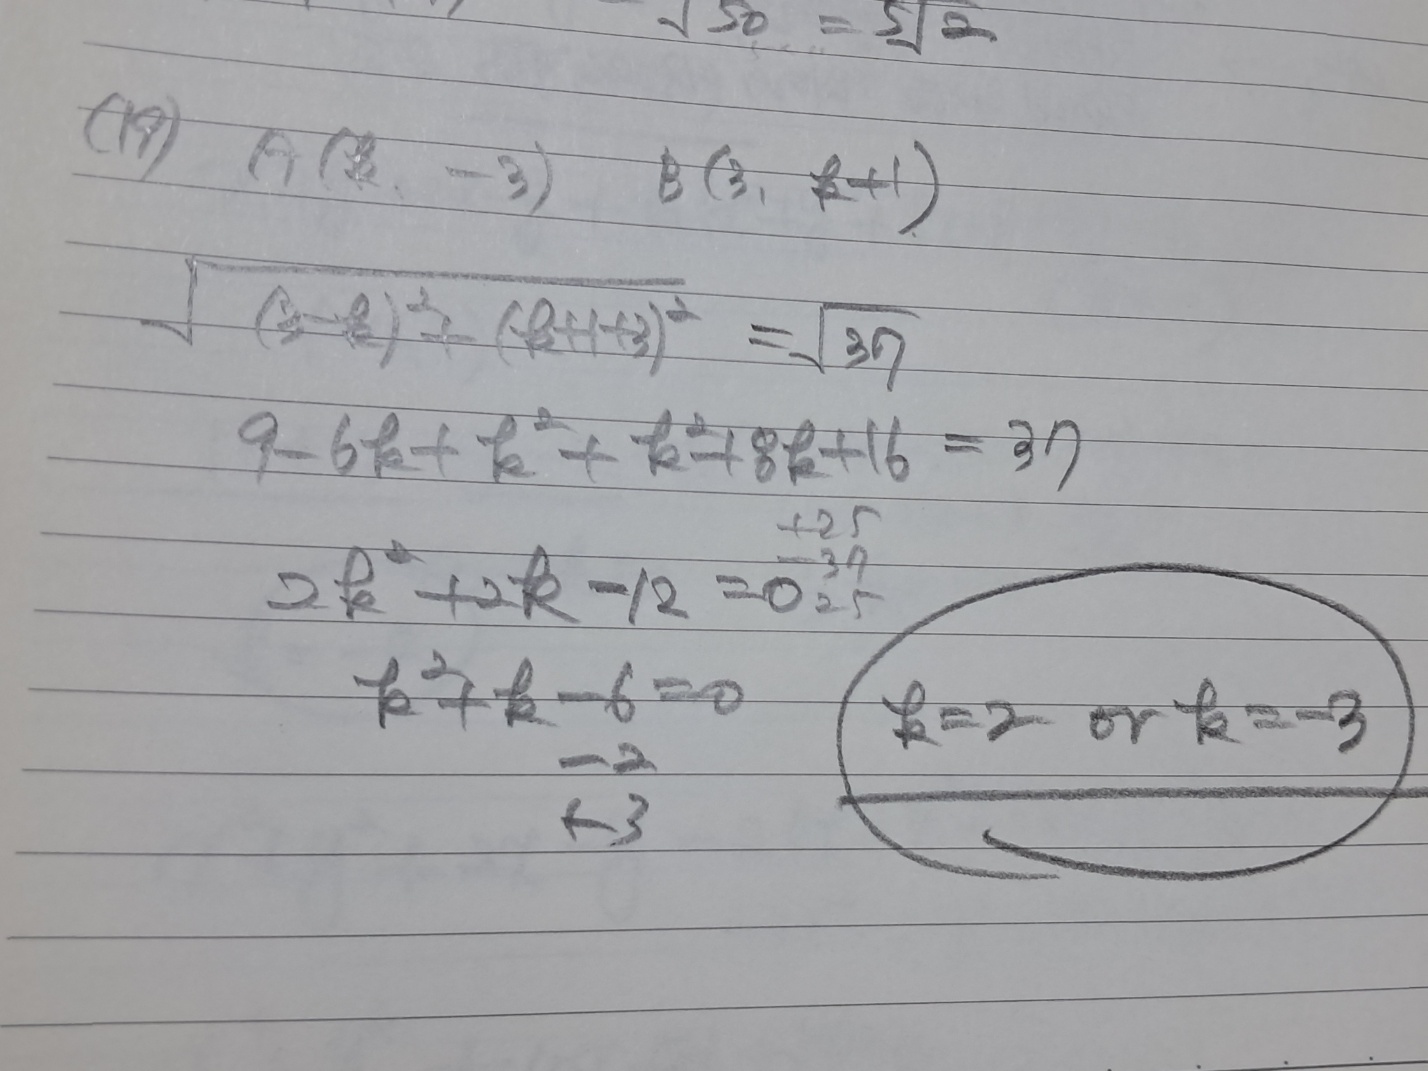 √50 = 5√2
(19) A(k, -3) B(3, k+1)
√((3-k)²+(k+1+3)²) = √37
9-6k+k²+k²+8k+16 = 37
+25
-37
2k²+2k-12=0 25
k²+k-6=0
k=2 or k=-3
-2
+3